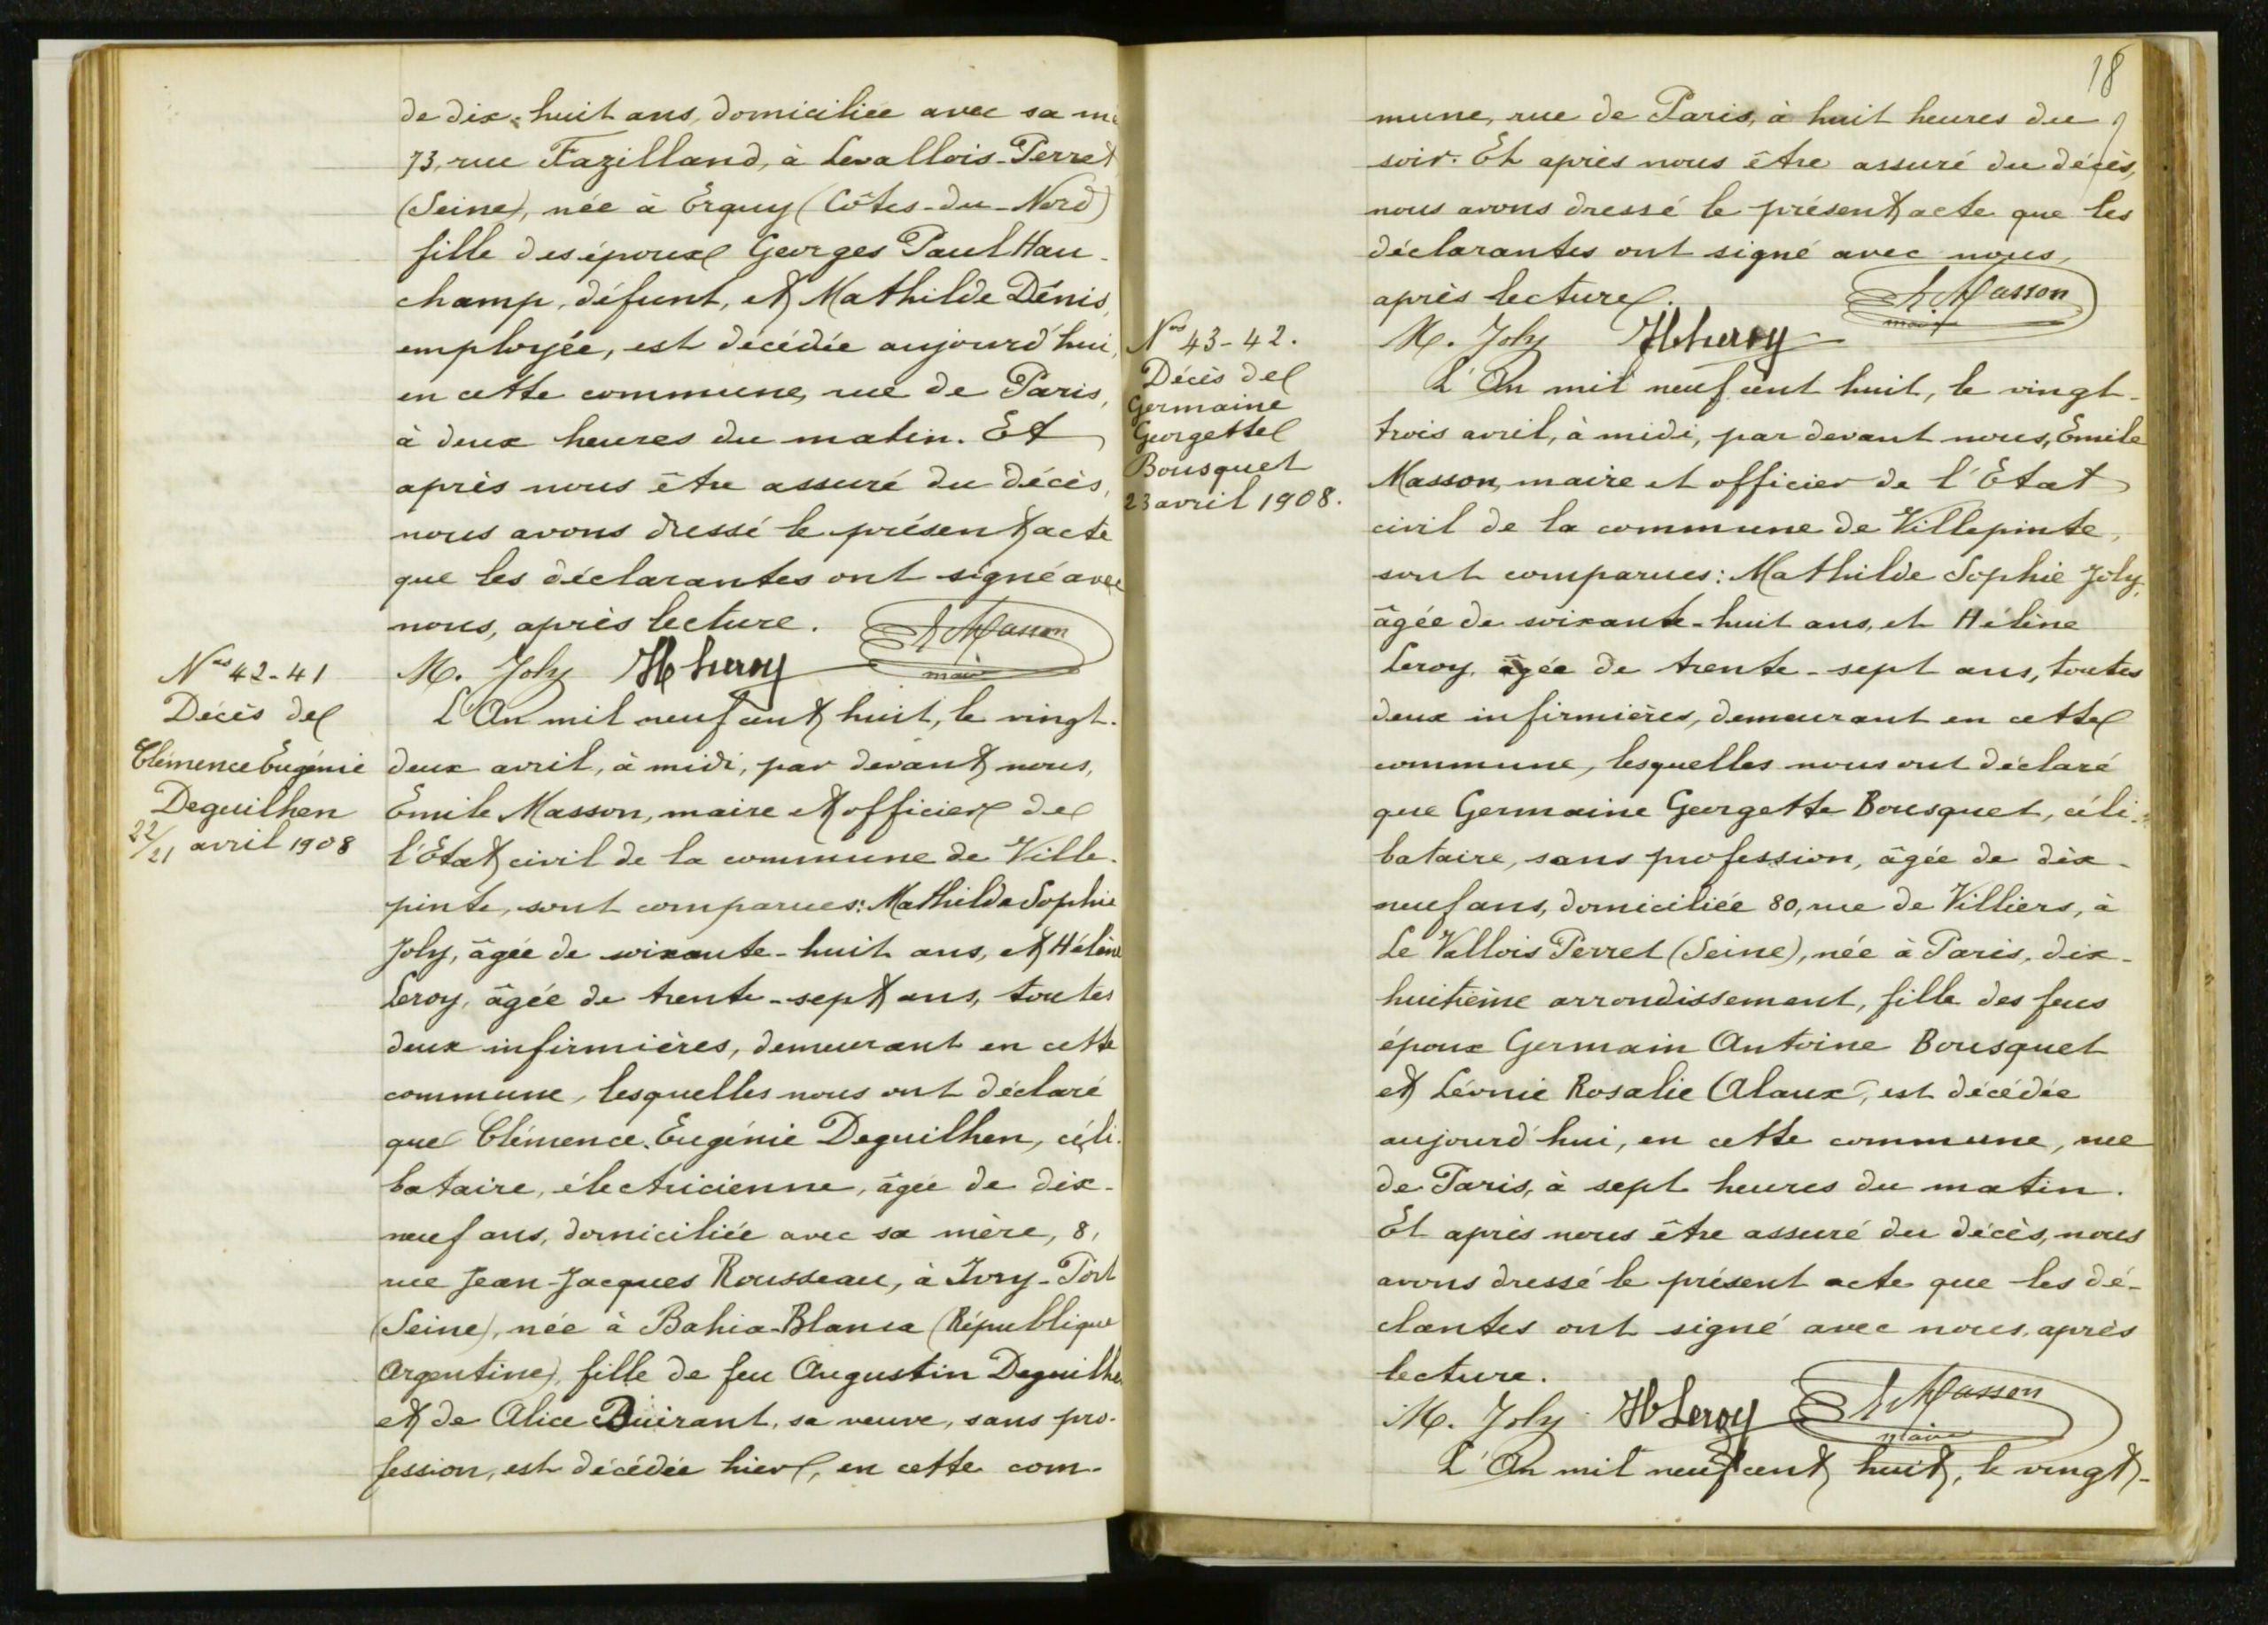 de dix-huit ans, domiciliée avec sa mè
73, rue Fazilland, à Levallois-Perret
(Seine), née à Erquy (Côtes-du-Nord)
fille des époux Georges Paul Hau-
champ, défunt, et Mathilde Dénis,
employée, est décédée aujourd'hui,
en cette commune, rue de Paris,
à deux heures du matin. Et
après nous être assuré du décès,
nous avons dressé le présent acte
que les déclarantes ont signé avec
nous, après lecture. E. Masson
M. Joly H Leroy maire
Nos 42-41
Décès de
Clémence Eugénie
Deguilhen
22/21 avril 1908
L'An mil neuf cent huit, le vingt-
deux avril, à midi, par devant nous,
Emile Masson, maire et officier de
l'Etat civil de la commune de Ville-
pinte, sont comparues: Mathilde Sophie
Joly, âgée de soixante-huit ans, et Hélène
Leroy, âgée de trente-sept ans, toutes
deux infirmières, demeurant en cette
commune, lesquelles nous ont déclaré
que Clémence Eugénie Deguilhen, céli-
bataire, électricienne, âgée de dix-
neuf ans, domiciliée avec sa mère, 8,
rue Jean-Jacques Rousseau, à Ivry-Port
(Seine), née à Bahia-Blanca (République
Argentine), fille de feu Augustin Deguilhe
et de Alice Buirant, sa veuve, sans pro-
fession, est décédée hier, en cette com-
18
mune, rue de Paris, à huit heures du
soir. Et après nous être assuré du décès,
nous avons dressé le présent acte que les
déclarantes ont signé avec nous,
après lecture. E. Masson
maire
M. Joly H Leroy
Nos 43-42.
Décès de
Germaine
Georgette
Bousquet
23 avril 1908.
L'An mil neuf cent huit, le vingt-
trois avril, à midi, par devant nous, Emile
Masson, maire et officier de l'Etat
civil de la commune de Villepinte,
sont comparues: Mathilde Sophie Joly,
âgée de soixante-huit ans, et Hélène
Leroy, âgée de trente-sept ans, toutes
deux infirmières, demeurant en cette
commune, lesquelles nous ont déclaré
que Germaine Georgette Bousquet, céli-
bataire, sans profession, âgée de dix-
neuf ans, domiciliée 80, rue de Villiers, à
Le Vallois Perret (Seine), née à Paris, dix-
huitième arrondissement, fille des feus
époux Germain Antoine Bousquet
et Léonie Rosalie Alaux, est décédée
aujourd'hui, en cette commune, rue
de Paris, à sept heures du matin.
Et après nous être assuré du décès, nous
avons dressé le présent acte que les dé-
clantes ont signé avec nous, après
lecture.
M. Joly H Leroy E. Masson
maire
L'An mil neuf cent huit, le vingt-